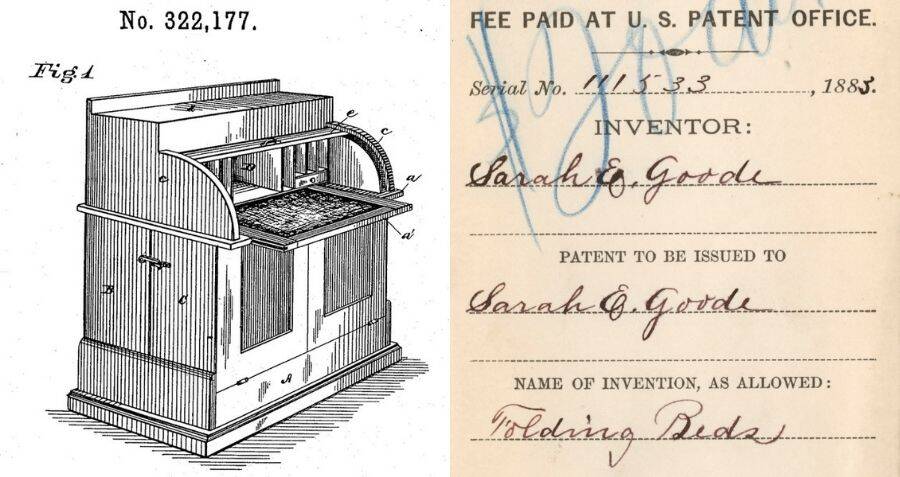 No. 322,177.
Fig. 1
e
c
a
a'
B
C
A
FEE PAID AT U. S. PATENT OFFICE.
Serial No. 111533, 1885.
INVENTOR:
Sarah E. Goode
PATENT TO BE ISSUED TO
Sarah E. Goode
NAME OF INVENTION, AS ALLOWED:
Folding Beds